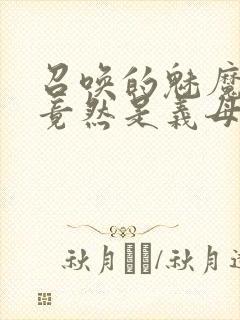 召唤的魅魔
竟然是义母
秋月/秋月